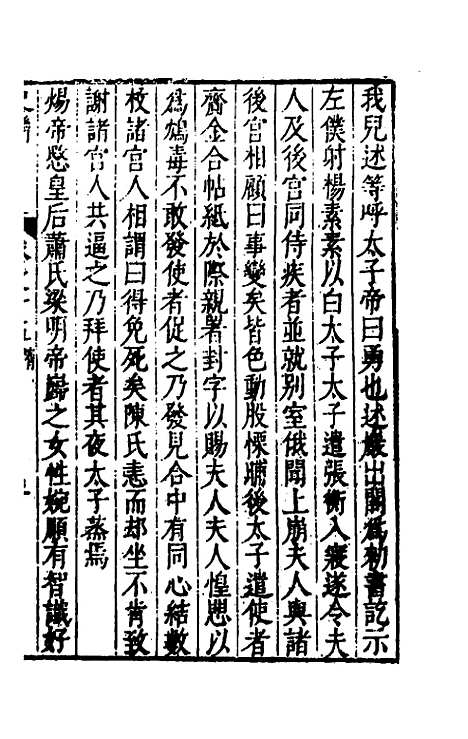 我兒述等呼太子帝曰勇也述巖出閣爲勑書訖示
左僕射楊素素以白太子太子遣張衡入寢遂令夫
人及後宮同侍疾者並就別室俄聞上崩夫人與諸
後宮相顧曰事變矣皆色動股慄晡後太子遣使者
齎金合帖紙於際親署封字以賜夫人夫人惶思以
爲鴆毒不敢發使者促之乃發見合中有同心結數
枚諸宮人相謂曰得免死矣陳氏恚而却坐不肯致
謝諸宮人共逼之乃拜使者其夜太子蒸焉
煬帝愍皇后蕭氏梁明帝巋之女性婉順有智識好